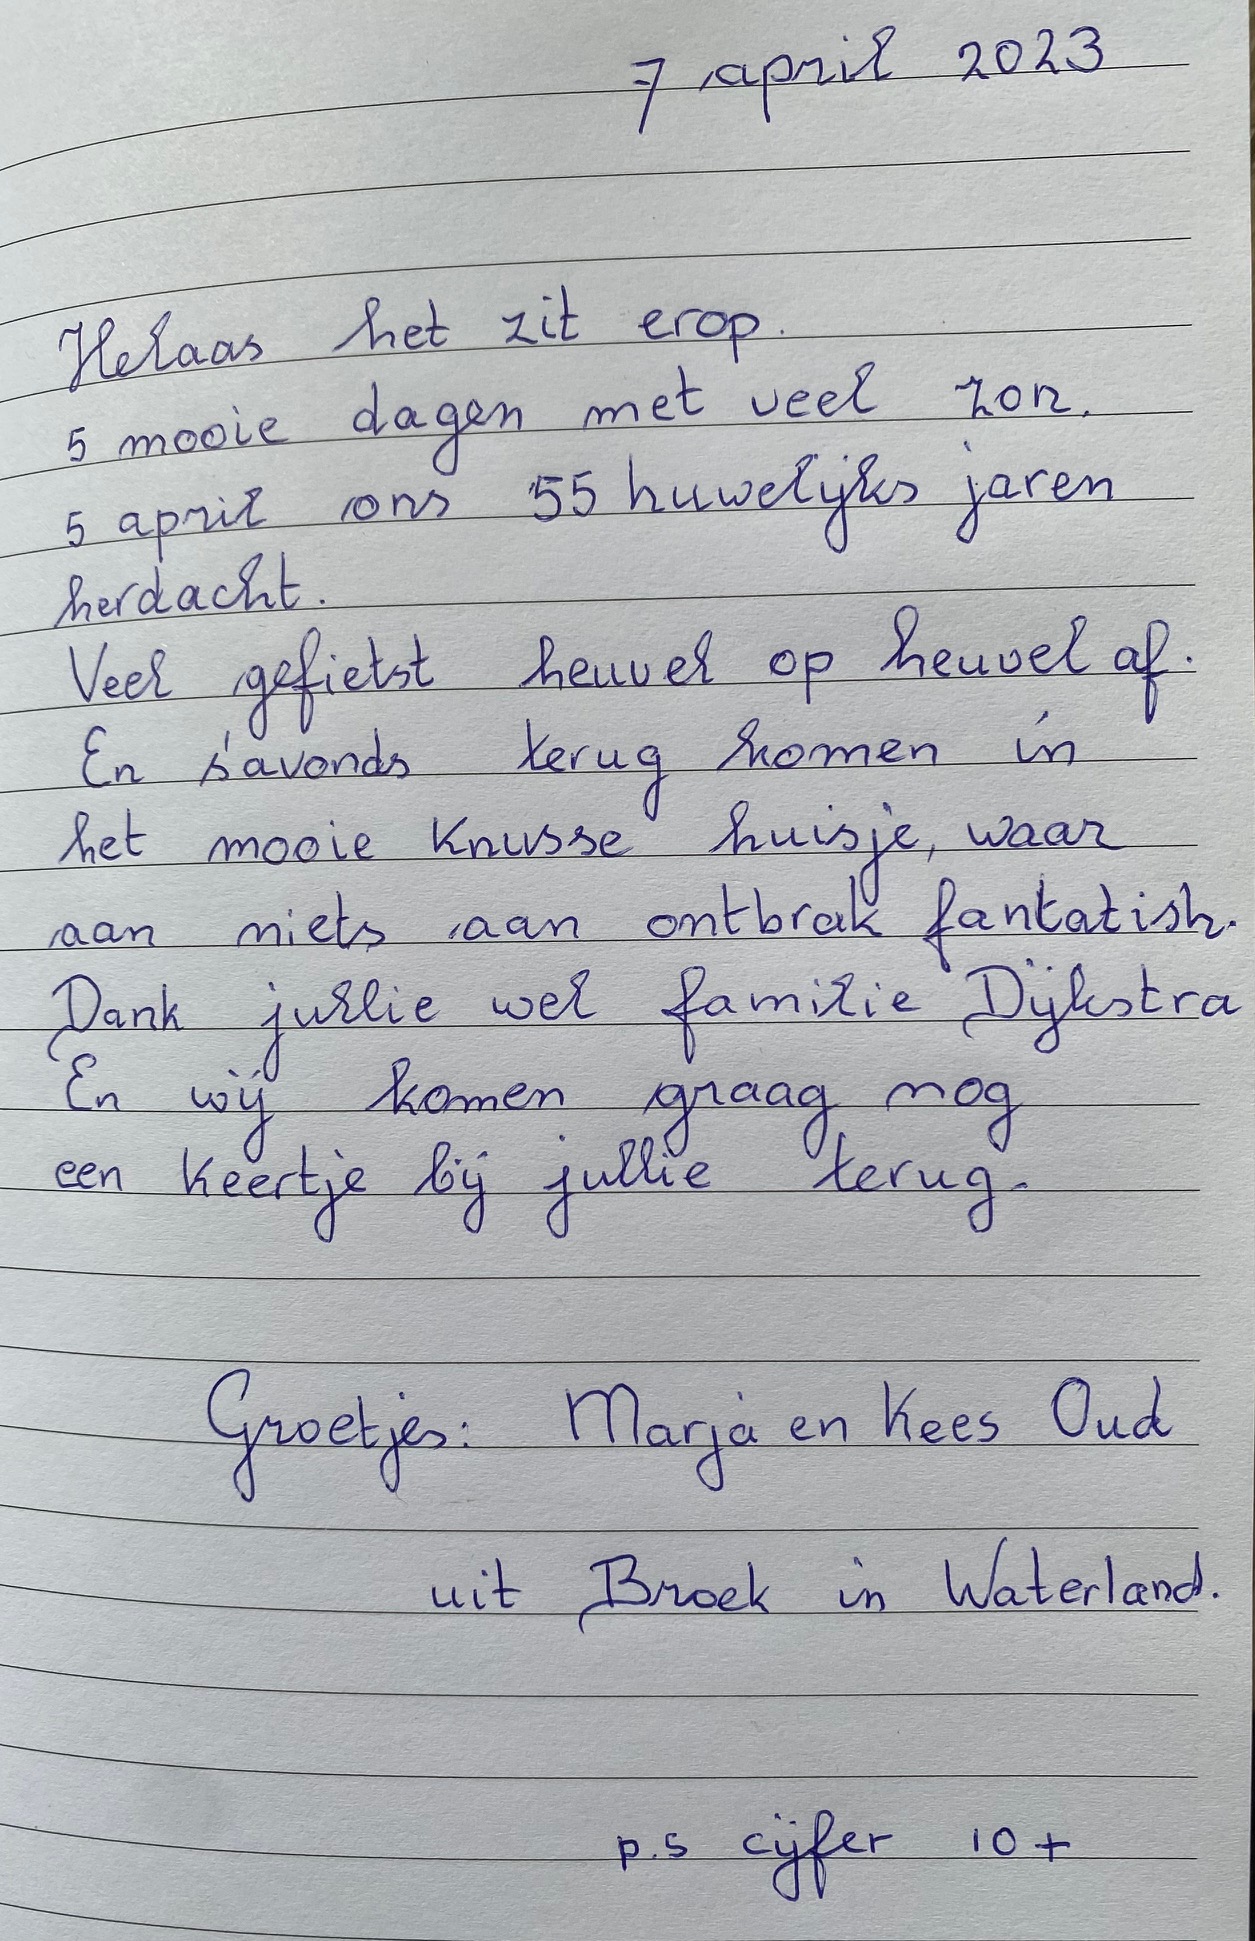 7 april 2023
Helaas het zit erop.
5 mooie dagen met veel zon.
5 april ons 55 huwelijks jaren
herdacht.
Veel gefietst heuvel op heuvel af.
En s'avonds terug komen in
het mooie knusse huisje, waar
aan niets aan ontbrak fantatish.
Dank jullie wel familie Dijkstra
En wij komen graag nog
een keertje bij jullie terug.
Groetjes: Marja en Kees Oud
uit Broek in Waterland.
p.s cijfer 10+